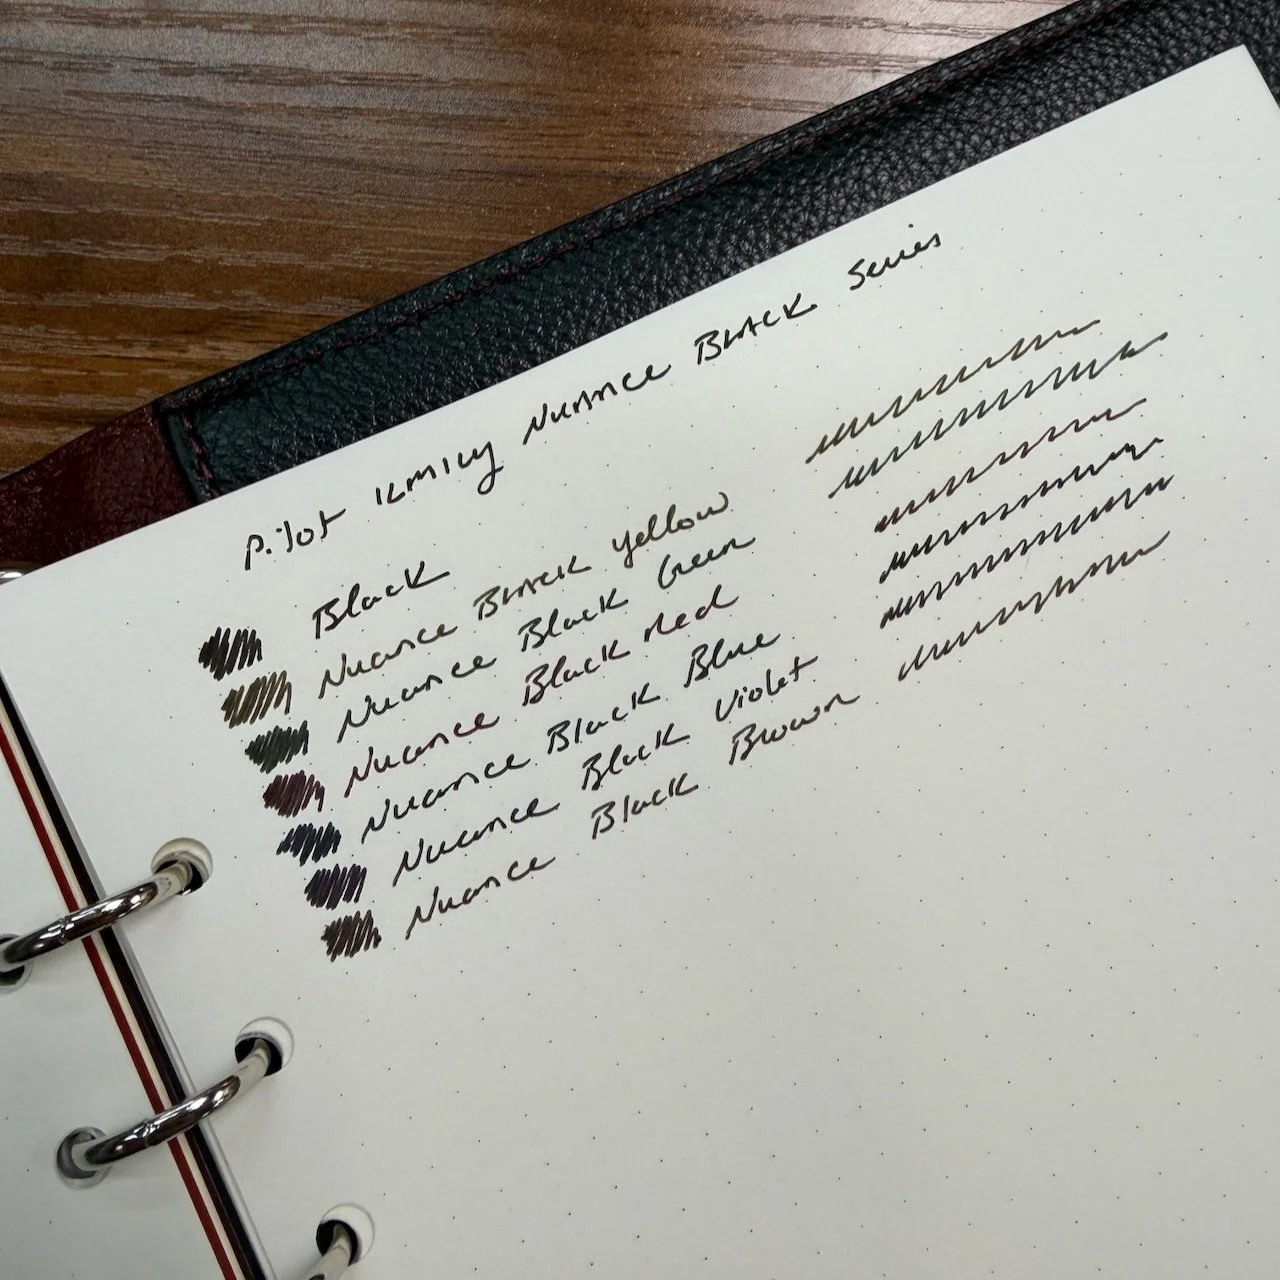 Pilot Ilmily Nuance BLACK Series
Black
Nuance BLACK yellow
Nuance Black Green
Nuance Black Red
Nuance Black Blue
Nuance Black Violet
Nuance Black Brown